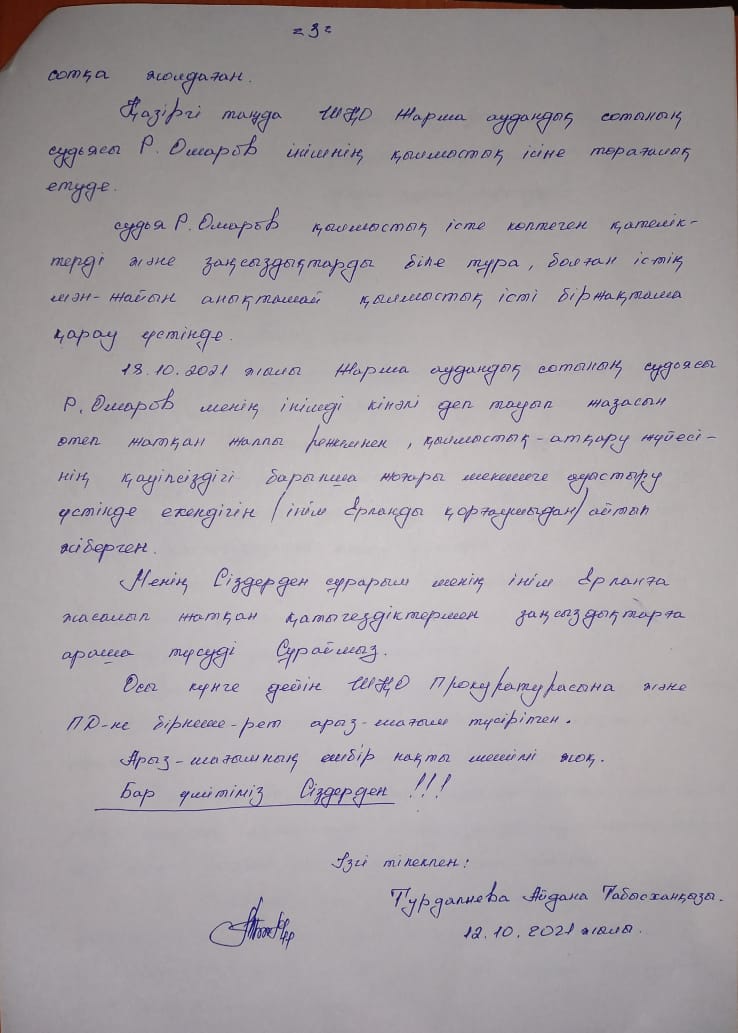 - 3 -
сотқа жолдаған.
Қазіргі таңда ШҚО Жарма аудандық сотының
судьясы Р. Омаров інішнің қылмыстық ісіне төрағалық
етуде.
судья Р. Омаров қылмыстық істе көптеген қателік-
терді және заңсыздықтарды біле тұра, болған істің
мән-жайын анықтамай қылмыстық істі біржақтама
қарау үстінде.
18.10.2021 жылы Жарма аудандық сотының судьясы
Р. Омаров менің інімді кінәлі деп тауып жазасын
өтеп жатқан жалпы режимнен, қылмыстық-атқару жүйесі-
нің қауіпсіздігі барынша жоғары мекемеге ауыстыру
үстінде екендігін (інім Ерланды қорғаушыдан) айтып
жіберген.
Менің Сіздерден сұрарым менің інім Ерланға
жасалып жатқан қатыгездіктермен заңсыздықтарға
араша түсуді Сұраймыз.
Осы күнге дейін ШҚО Прокуратурасына және
ПД-не бірнеше-рет арыз-шағым түсірілген.
Арыз-шағымның ешбір нақты шешімі жоқ.
Бар үмітіміз Сіздерден !!!
Ізгі тілекпен:
Турдалиева Айдана Табысханқызы.
12.10.2021 жылы.